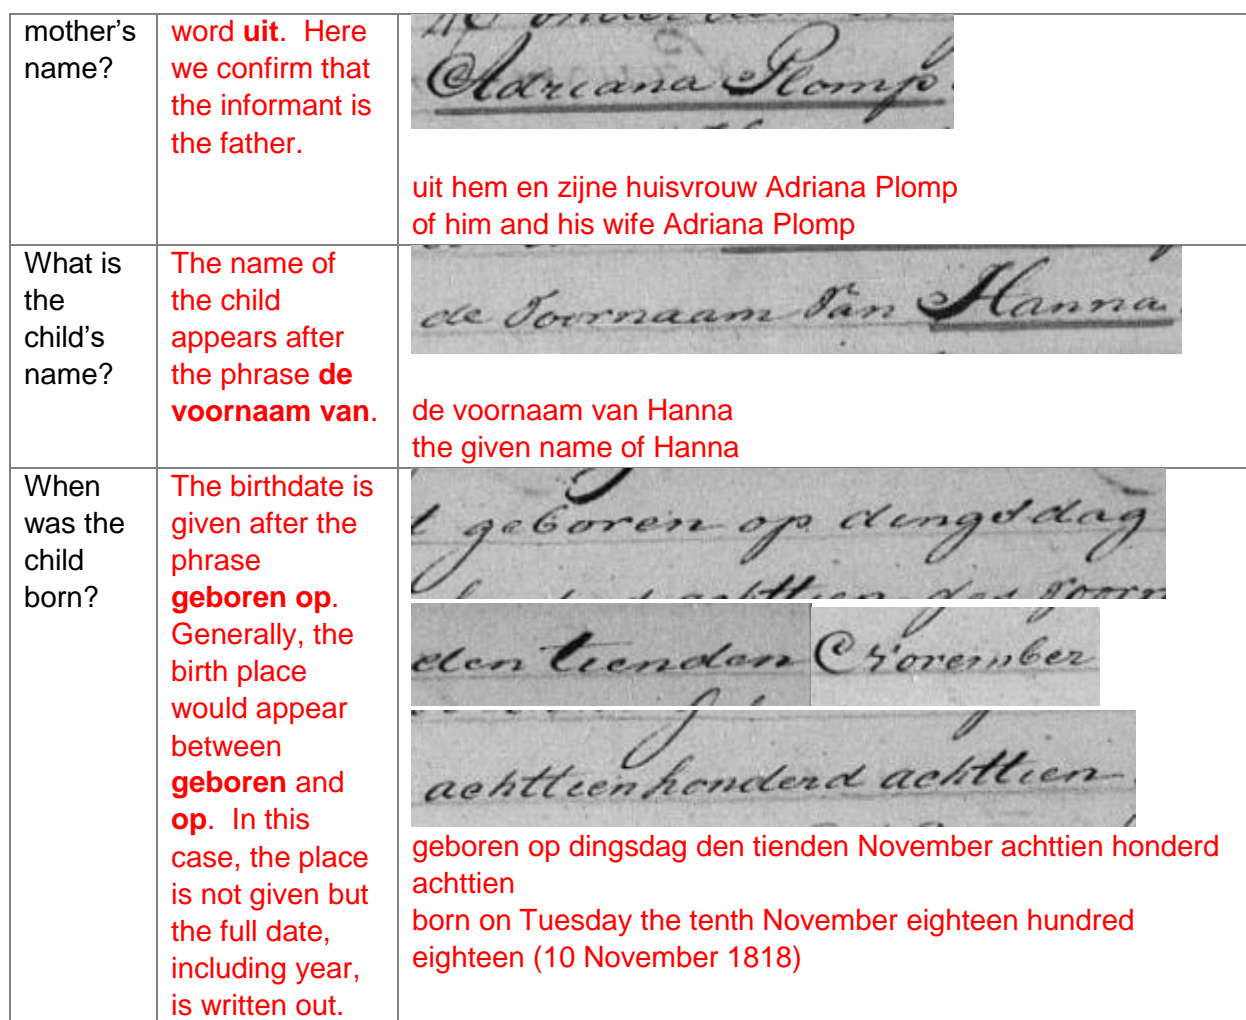 mother's
name?
word uit. Here
we confirm that
the informant is
the father.
Adriana Plomp
uit hem en zijne huisvrouw Adriana Plomp
of him and his wife Adriana Plomp
What is
the
child's
name?
The name of
the child
appears after
the phrase de
voornaam van.
de Voornaam Van Hanna
de voornaam van Hanna
the given name of Hanna
When
was the
child
born?
The birthdate is
given after the
phrase
geboren op.
Generally, the
birth place
would appear
between
geboren and
op. In this
case, the place
is not given but
the full date,
including year,
is written out.
geboren op dingsdag
den tienden November
achttienhonderd achttien
geboren op dingsdag den tienden November achttien honderd
achttien
born on Tuesday the tenth November eighteen hundred
eighteen (10 November 1818)